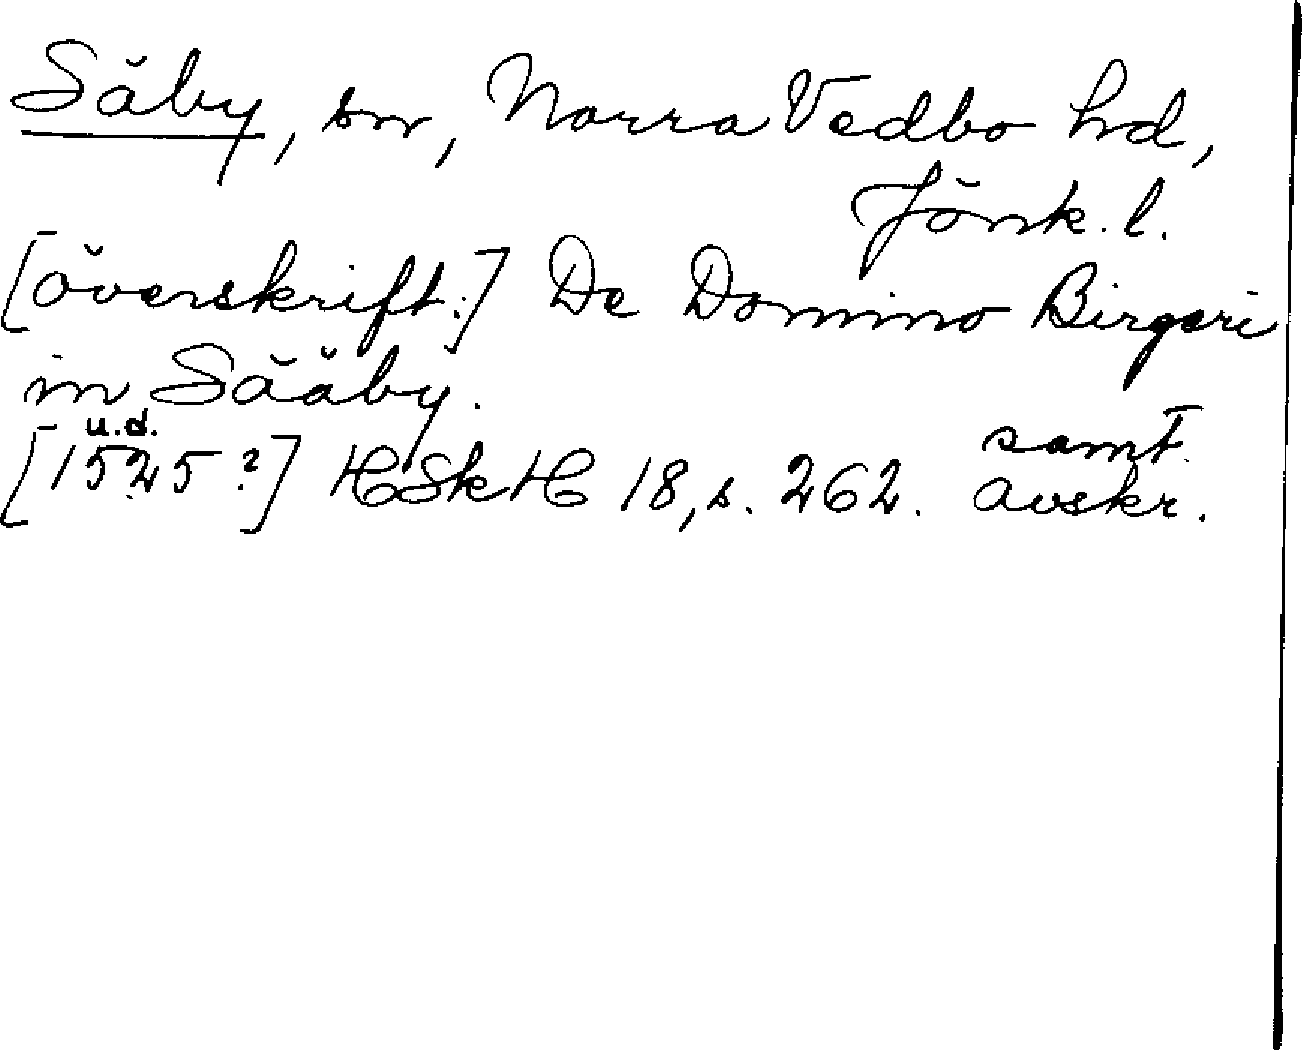 Säby, sn, Norra Vedbo hd,
Jönk. l.
[överskrift:] De Domino Birgeri
in Sääby.
u.d.
[1525?] HSkH 18, s. 262. samt.
avskr.